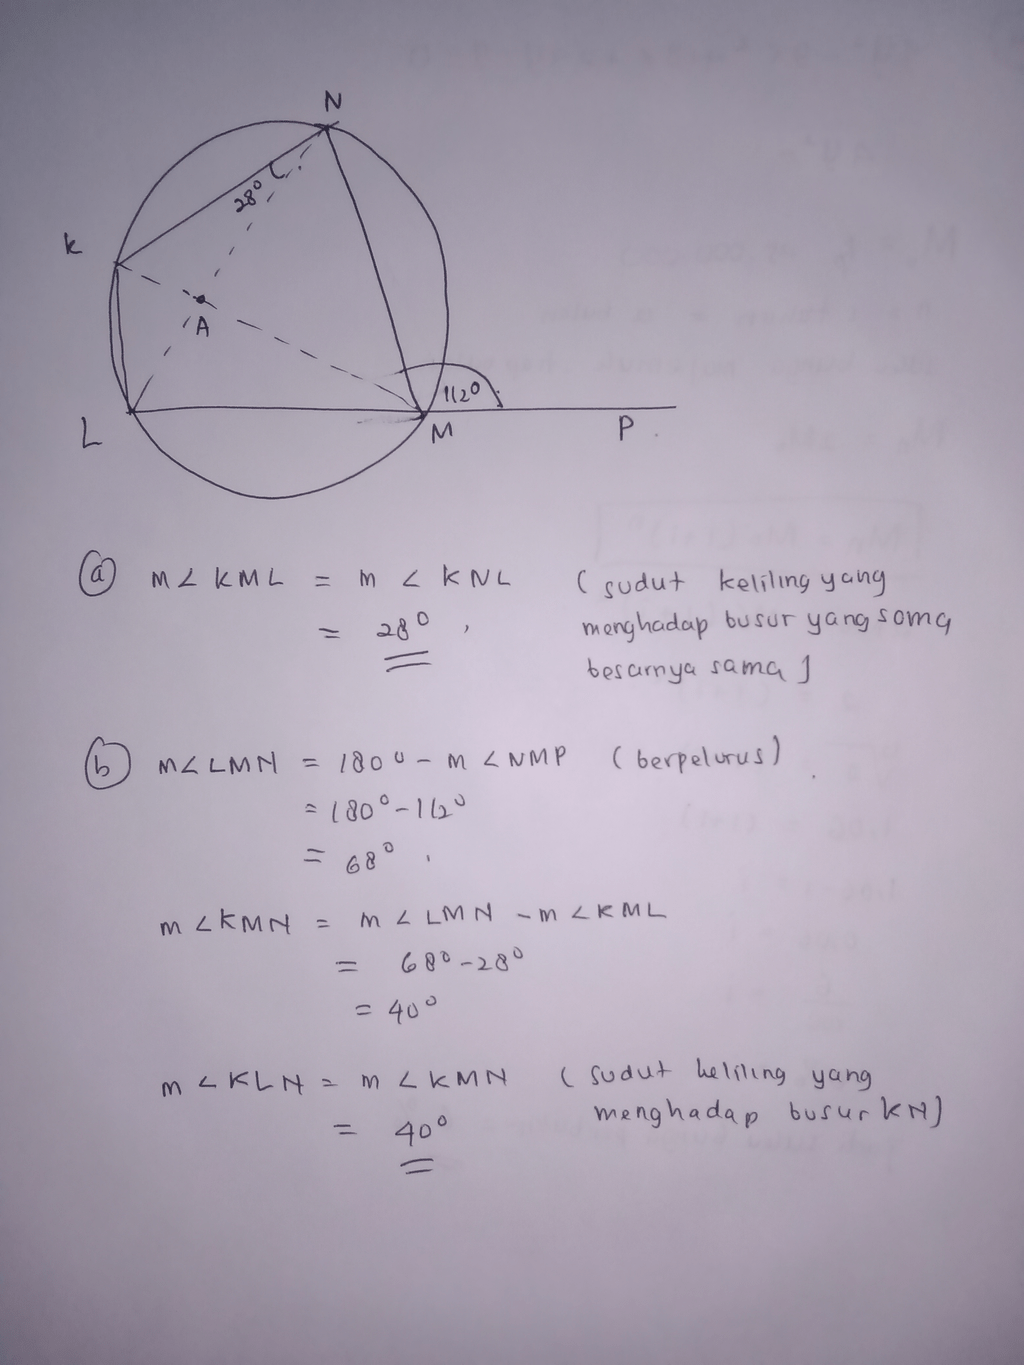 N
28°
K
A
112°
L
M
P
(a) m∠KML = m∠KNL (sudut keliling yang
= 28°, menghadap busur yang sama
besarnya sama]
(b) m∠LMN = 180° - m∠NMP (berpelurus)
= 180° - 112°
= 68°.
m∠KMN = m∠LMN - m∠KML
= 68° - 28°
= 40°
m∠KLN = m∠KMN (sudut keliling yang
= 40° menghadap busur KN)